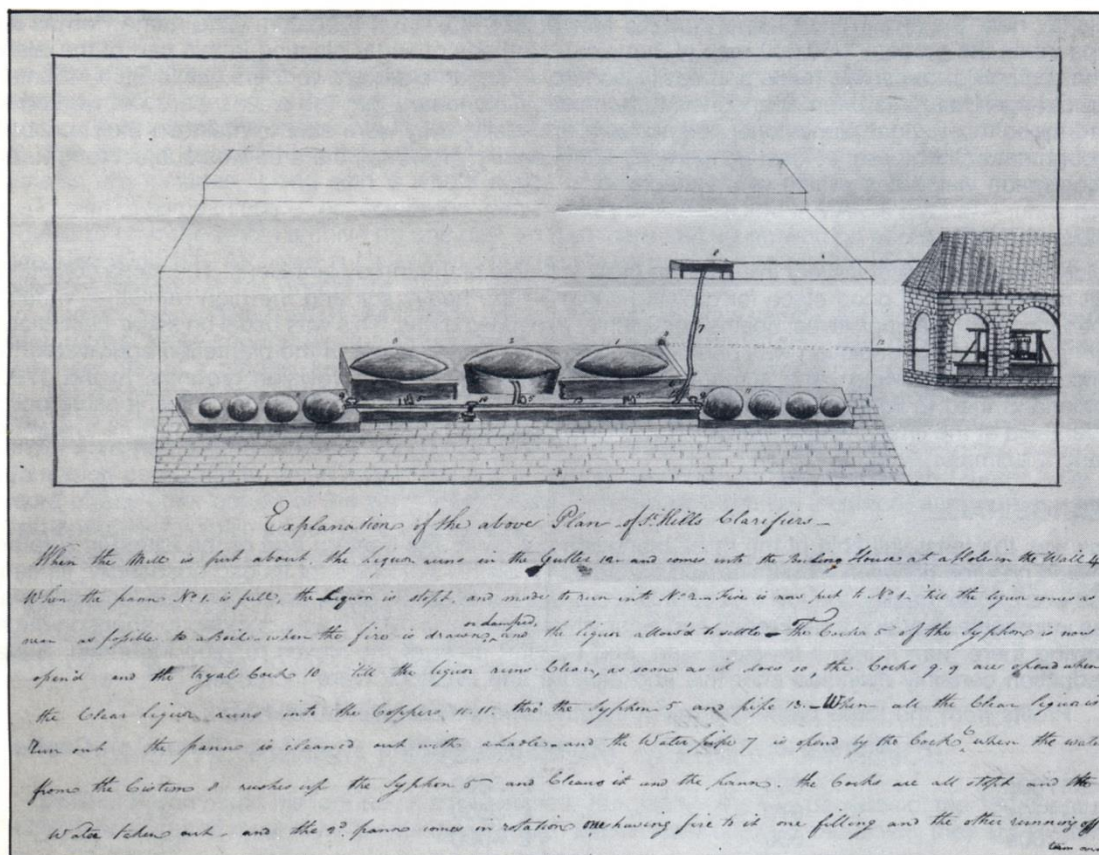 Explanation of the above Plan of St. Hills Clarifiers
When the Mill is put about, the Liquor runs in the Gutter 12 and comes into the Boiling House at a Hole in the Wall 4
When the pann No 1. is full, the Liquor is stopt, and made to run into No 2 Fire is now put to No 1. till the liquor comes as
near as possible to a Boil when the fire is drawn, or damped, and the liquor allow'd to settle The Cocks 5 of the Syphon is now
open'd and the tryal Cock 10 till the liquor runs Clear, as soon as it does so, the Cocks 9.9 are opend when
the Clear liquor runs into the Coppers 11.11. thro' the Syphon 5 and pipe 13. When all the Clear liquor is
run out the pann is cleaned out with a Ladle and the Water pipe 7 is opend by the Cock 6 when the water
from the Cistern 8 rushes up the Syphon 5 and Cleans it and the pann. the Cocks are all stopt and the
Water taken out and the 2d. pann comes in rotation one having fire to it one filling and the other running off